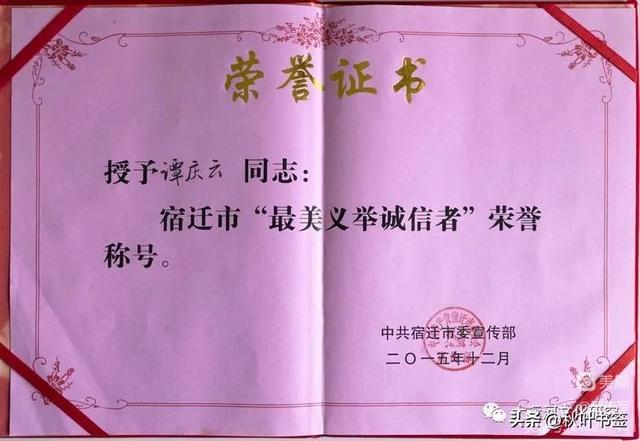 荣誉证书
授予谭庆云 同志：
宿迁市“最美义举诚信者”荣誉
称号。
中共宿迁市委宣传部
二〇一五年十二月
美篇
头条 @秋叶书签